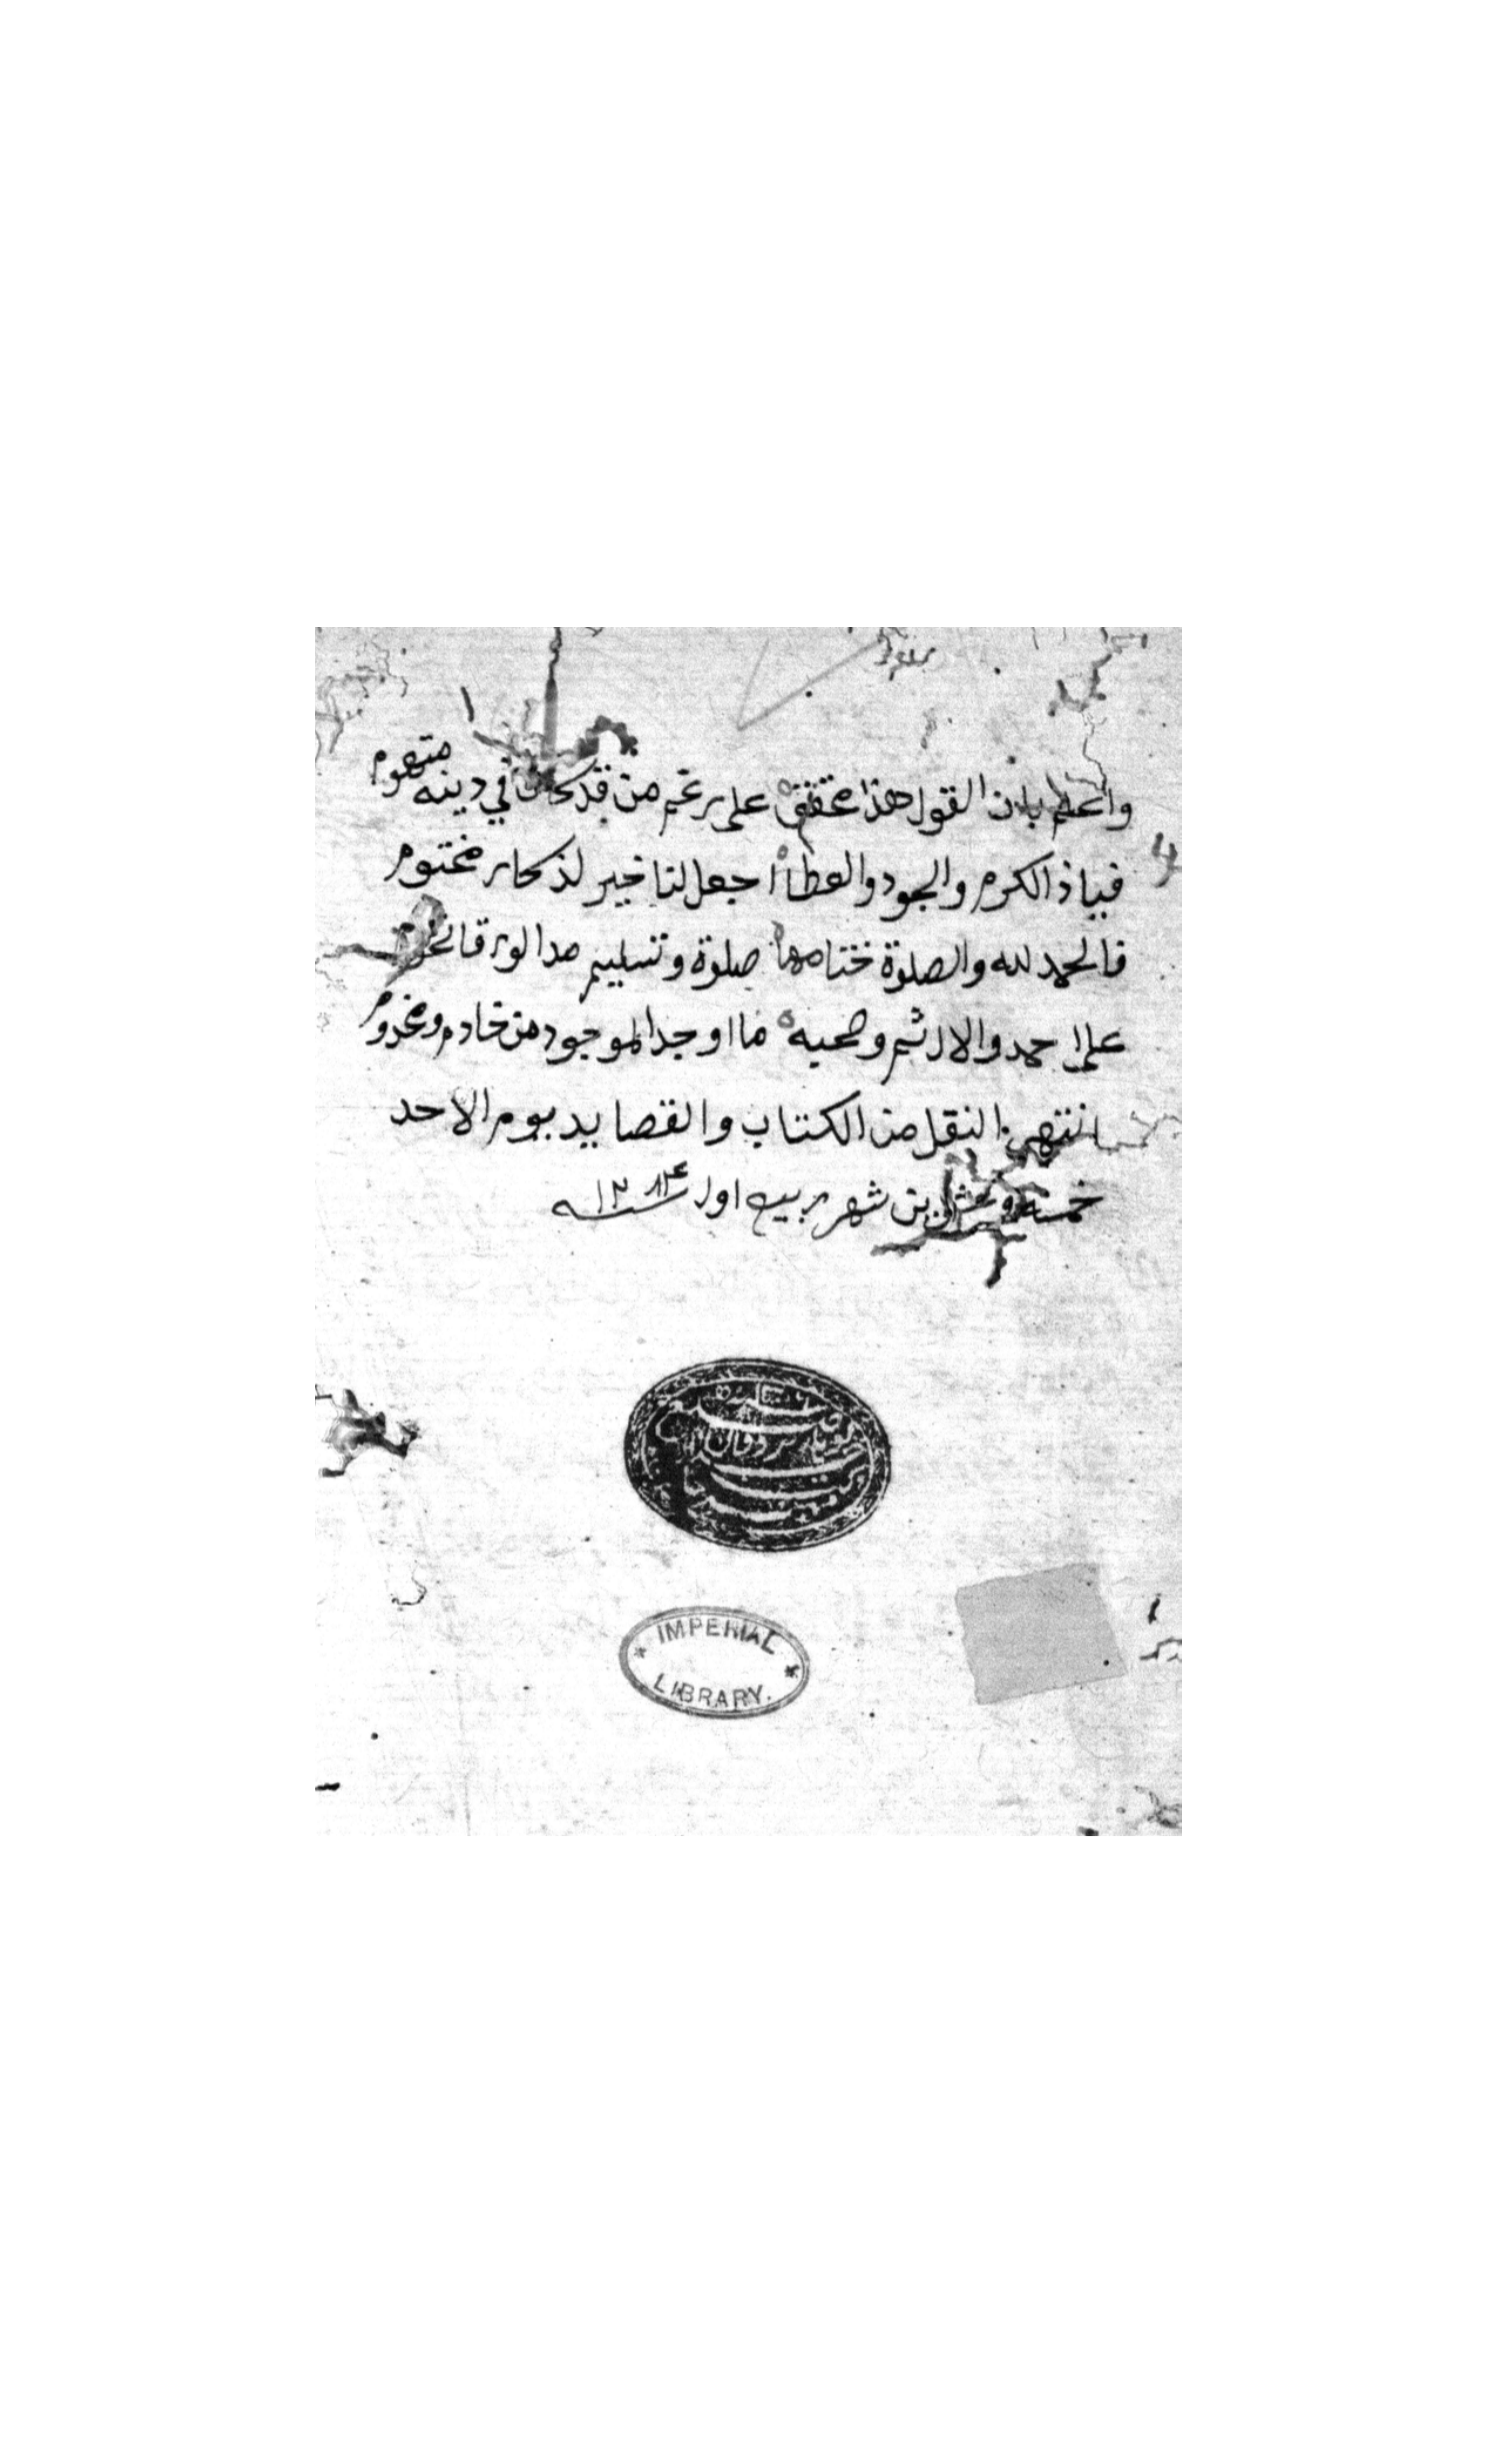 واعلم بان القول هذا محقق ه على رغم من قد كان في دينه متهوم
فياذ الكرم والجود والعطاء ه اجعل لنا خير لذكار مختوم
فالحمد لله والصلوة ختامها ه صلوة وتسليم مدا لورقا
على احمد والال ثم وصحبه ه ما اوجد الموجود من خادم ومخدوم
انتهى النقل من الكتاب والقصايد بيوم الاحد
خمسة وعشرين شهر ربيع اول سنه ١٢
IMPERIAL
LIBRARY.